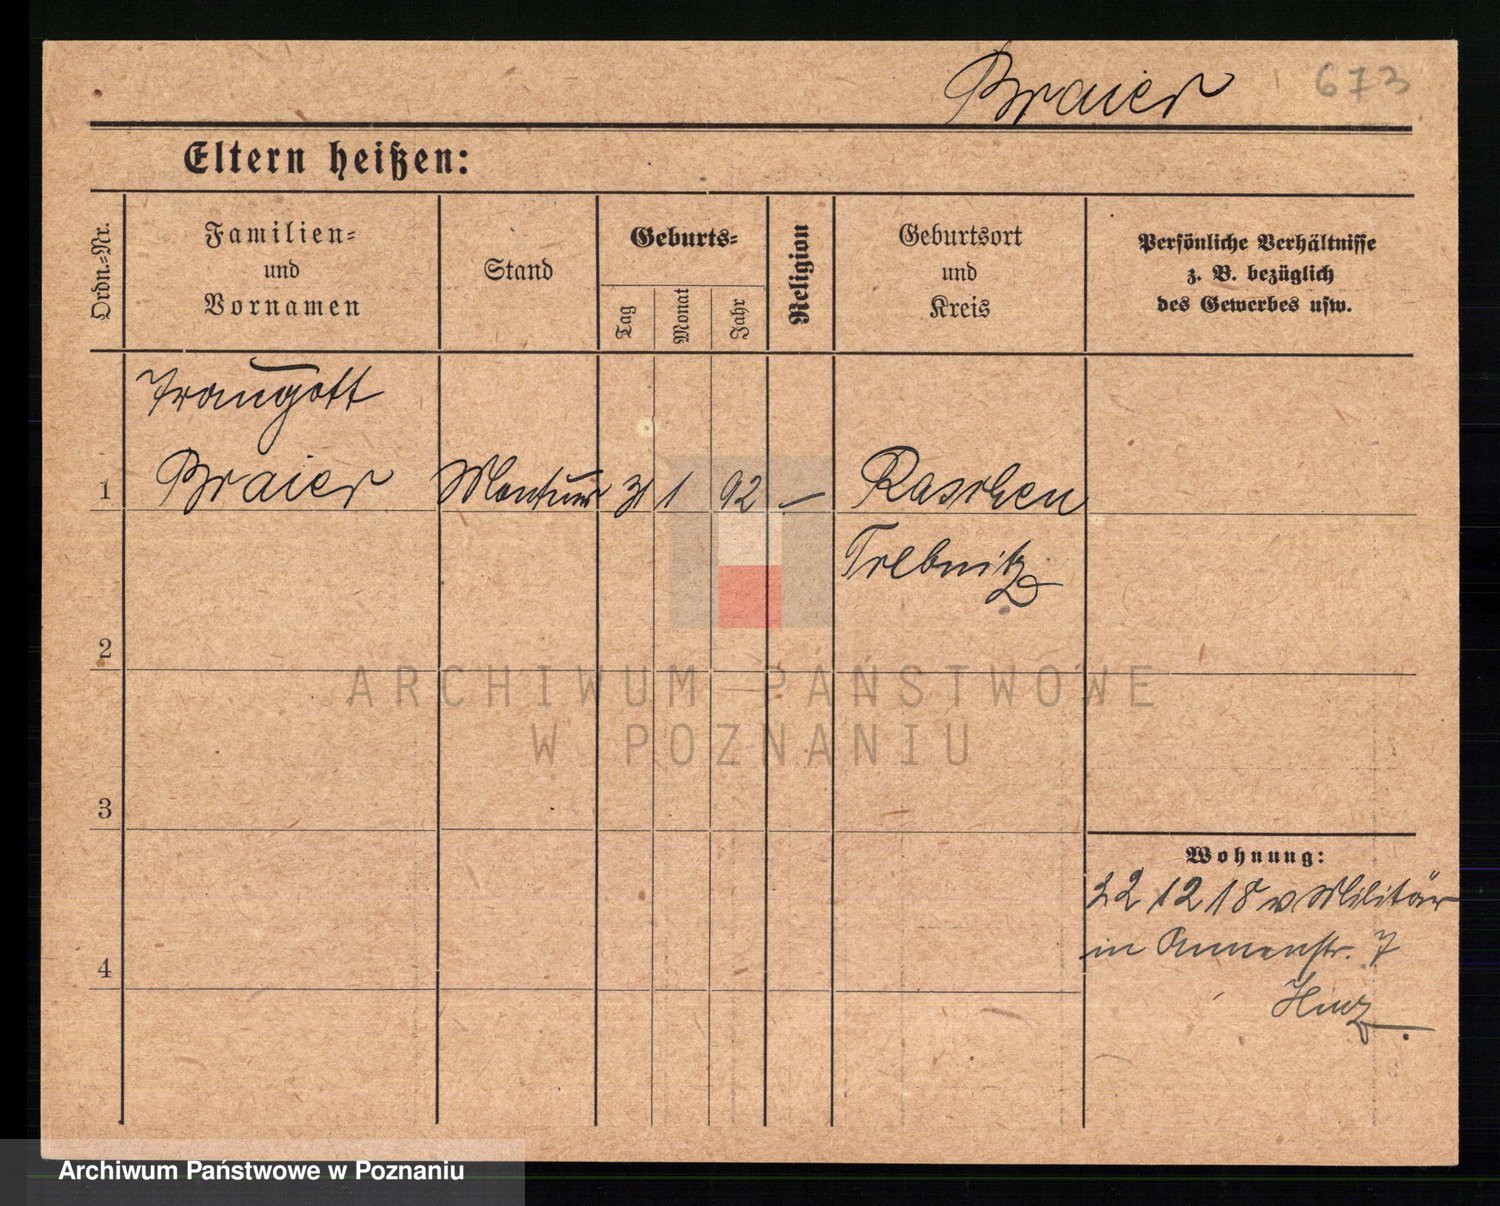 Braier 673
Eltern heißen:
Ordn.-Nr.
Familien-
und
Vornamen
Stand
Geburts-
Tag
Monat
Jahr
Religion
Geburtsort
und
Kreis
Persönliche Verhältnisse
z. B. bezüglich
des Gewerbes usw.
Traugott
1 Braier Monteur 31 1 92 — Raschen
Trebnitz
2
ARCHIWUM PAŃSTWOWE
W POZNANIU
3
Wohnung:
22 12 18 v Militär
in Annenstr. 7
4
Hinz
Archiwum Państwowe w Poznaniu